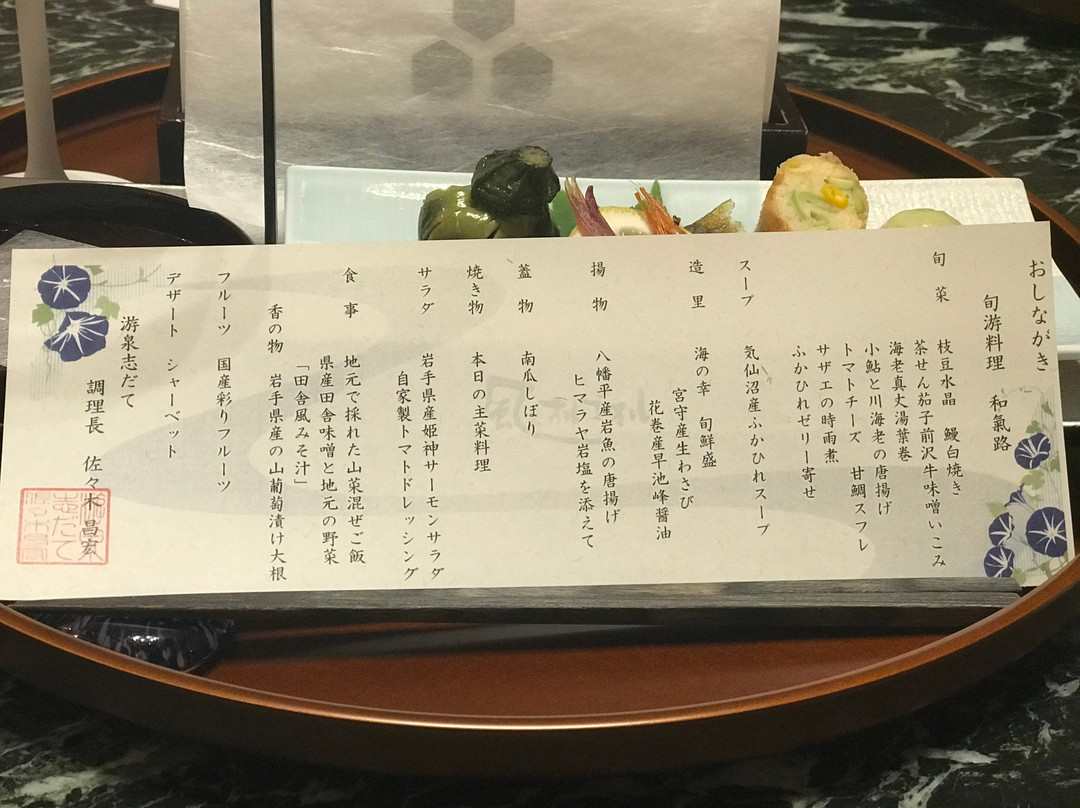 おしながき
旬游料理　和氣路
旬菜　枝豆水晶　鰻白焼き
茶せん茄子前沢牛味噌いこみ
海老真丈湯葉巻
小鮎と川海老の唐揚げ
トマトチーズ　甘鯛スフレ
サザエの時雨煮
ふかひれゼリー寄せ
スープ　気仙沼産ふかひれスープ
造里　海の幸　旬鮮盛
宮守産生わさび
花巻産早池峰醤油
揚物　八幡平産岩魚の唐揚げ
ヒマラヤ岩塩を添えて
蓋物　南瓜しぼり
焼き物　本日の主菜料理
サラダ　岩手県産姫神サーモンサラダ
自家製トマトドレッシング
食事　地元で採れた山菜混ぜご飯
県産田舎味噌と地元の野菜
「田舎風みそ汁」
香の物　岩手県産の山葡萄漬け大根
フルーツ　国産彩りフルーツ
デザート　シャーベット
游泉志だて
調理長　佐々木昌